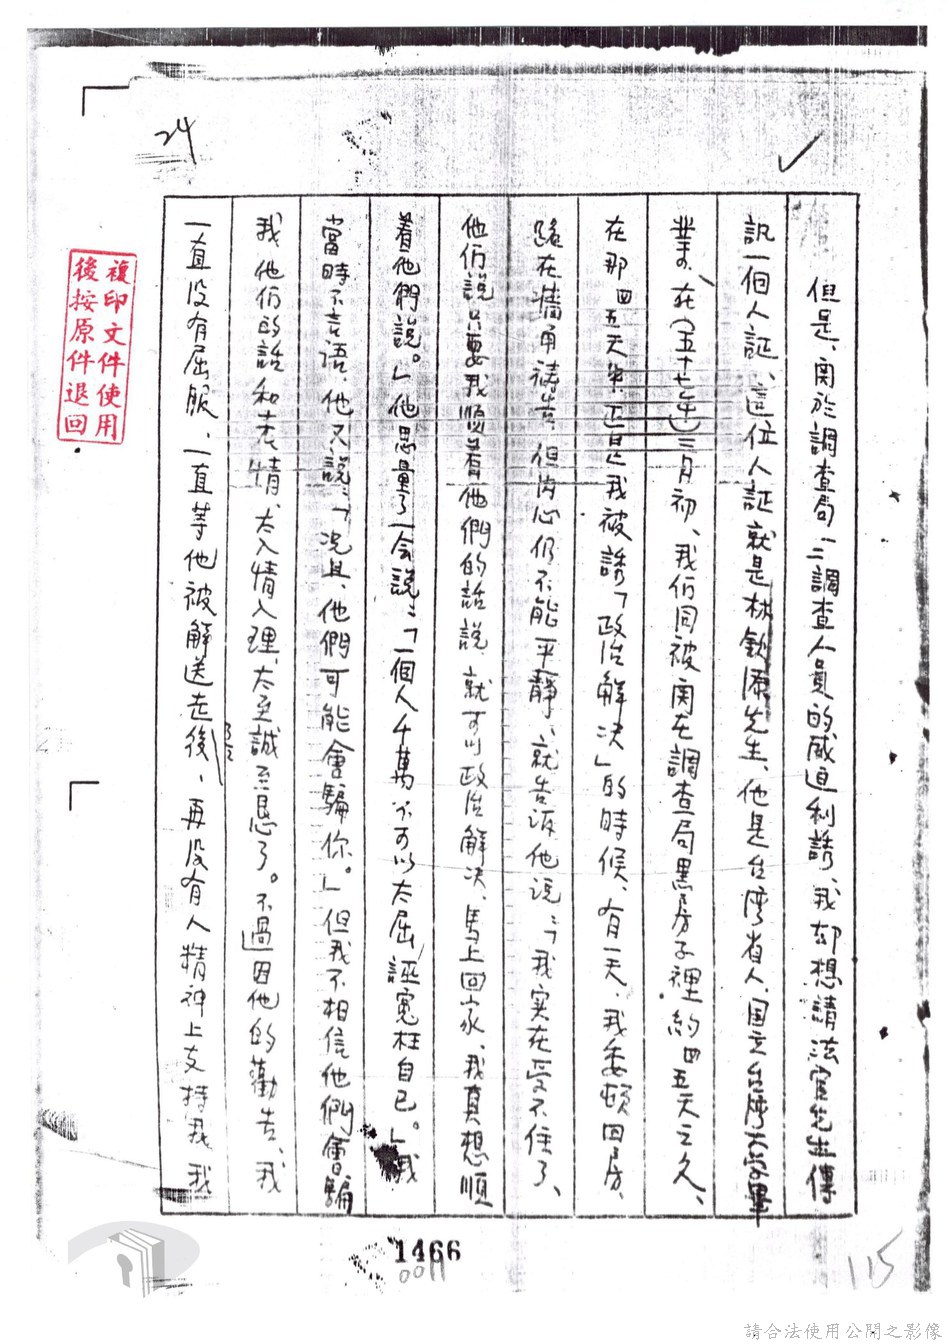 24
但是、関於調查局一二調查人員的威迫利誘、我却想請法官先生傳
訊一個人証、這位人証就是林欽添先生、他是台湾省人、国立台湾大学畢
業、在(五十七年)三月初、我们同被関在調查局黑房子裡約四五天之久、
在那四五天中、正是我被誘「政治解决」的時候、有一天、我委頓回房、
在牆角 但内心仍不能平靜、就告诉他说：「我实在受不住了、
他们説只要我順着他們的話説、就可以政治解决、馬上回家、我真想順
着他們說。」他思量了一会說：「一個人千萬不可以太屈誣寃枉自己。」我
當時不言語、他又說：「况且、他們可能會騙你。」但我不相信他們會騙
我、他们的話和表情、太入情入理、太至誠至恳了。不過因他的勸告、我
一直没有屈服、一直等他被解送走後、再没有人精神上支持我、我
複印文件使用
後按原件退回
1466
0011
115
請合法使用公開之影像